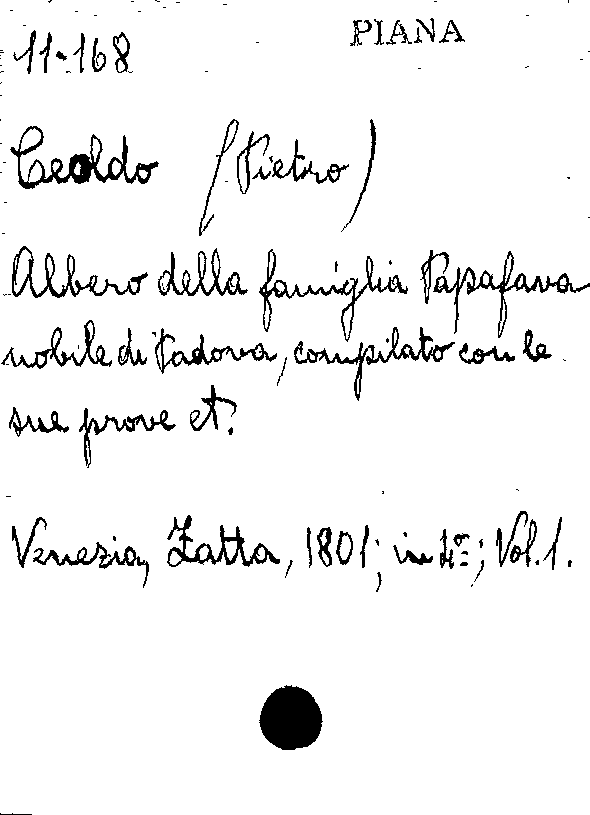 PIANA
11-168
Ceoldo (Pietro)
Albero della famiglia Papafava
nobile di Padova, compilato con le
sue prove et.
Venezia, Zatta, 1801; in 4º; Vol. 1.